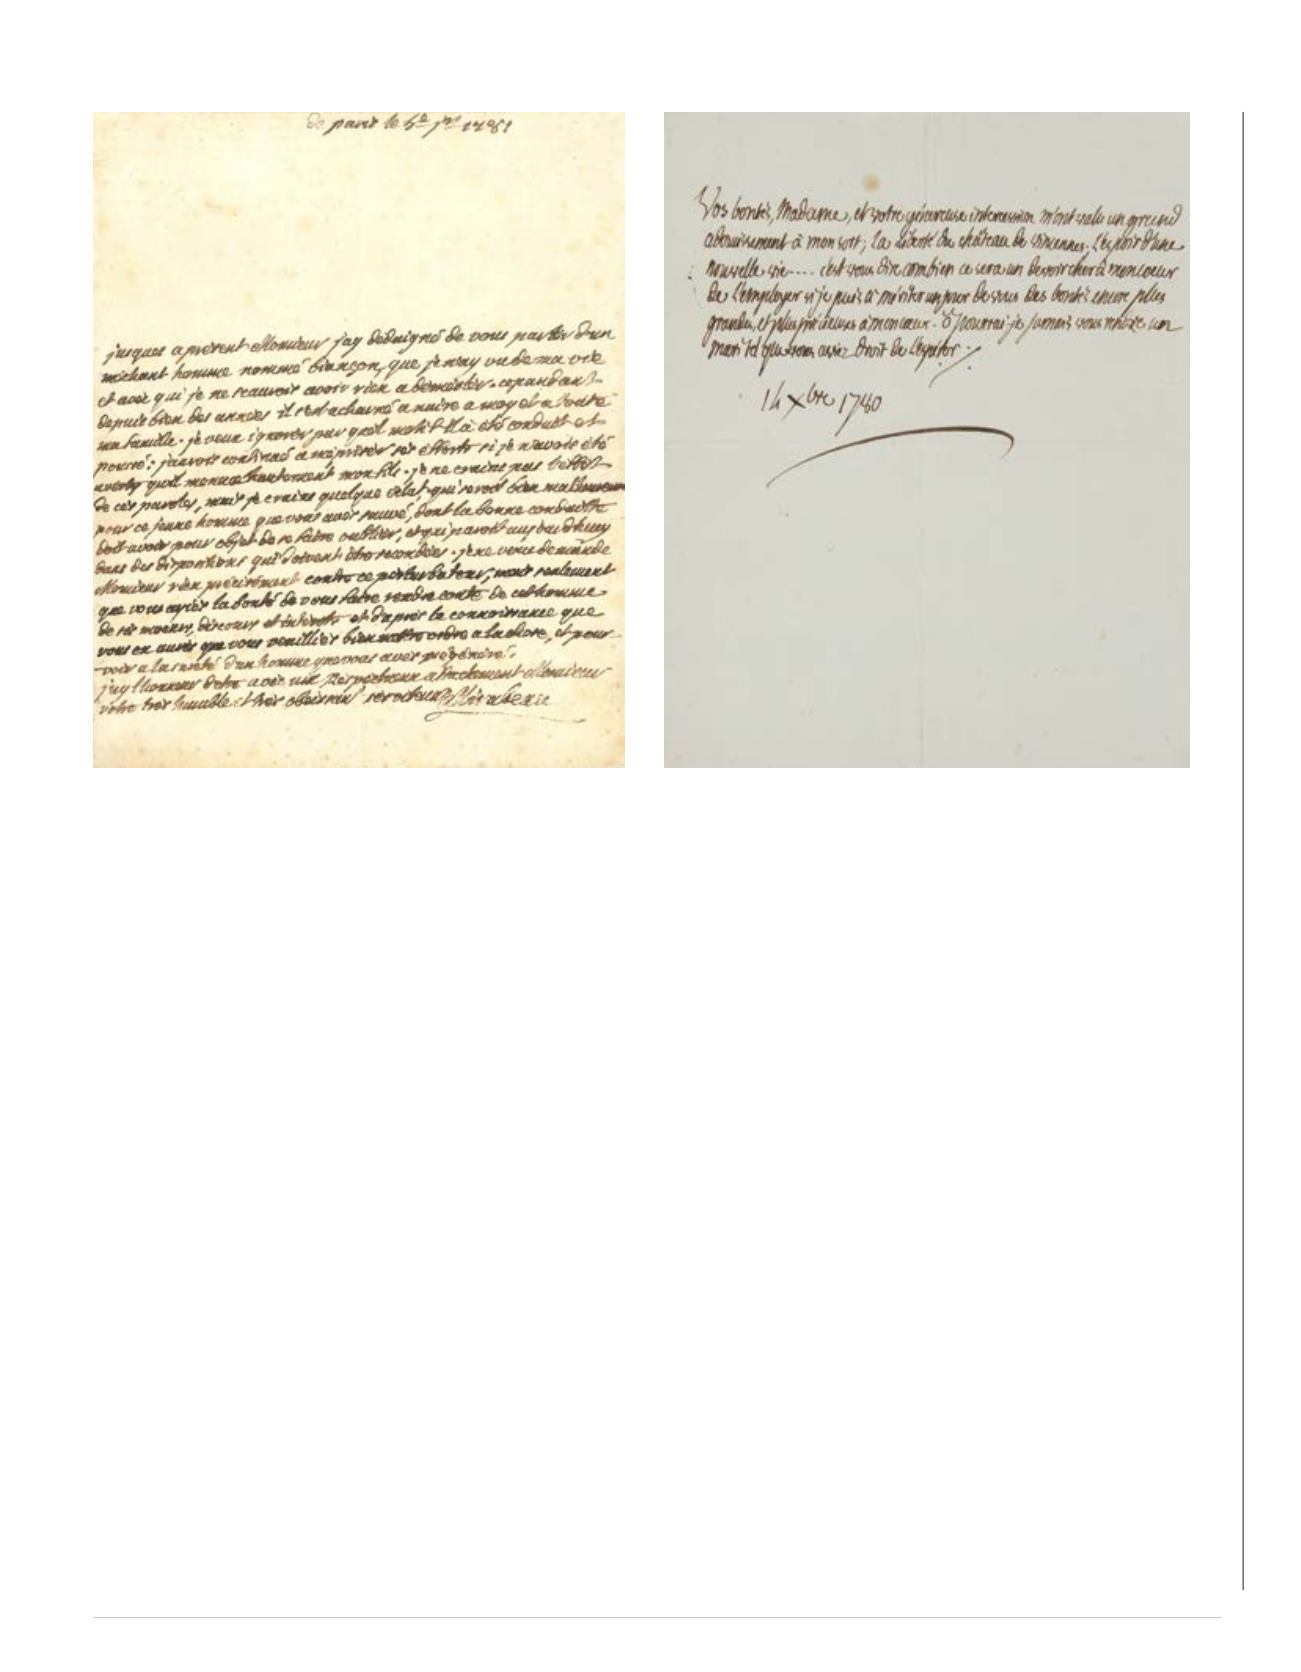 de paris le 5e jer 1781
jusques a présent Monsieur j'ay dédaigné de vous parler d'un
méchant homme nommé biançon, que je n'ay vu de ma vie
et avec qui je ne sçaurois avoir rien a démesler. cependant
depuis bien des années il s'est acharné a nuire a moy et a toute
ma famille. je veux ignorer par quel motif il a été conduit et
poussé: j'aurois continué a mépriser ses efforts si je n'avois été
averty qu'il menace hautement mon fils. je ne crains pas l'effet
de ces paroles, mais je crains quelque éclat qui seroit bien malheureux
pour ce jeune homme que vous avés sauvé, dont la bonne conduitte
doit avoir pour objet de se faire oublier, et qui paroit aujourdhuy
dans des dispositions qui doivent être secondées. je ne vous demande
Monsieur rien précisément contre ce perturbateur, mais seulement
que vous ayiés la bonté de vous faire rendre conte de cet homme
de ses moeurs, discours et intérêts et d'après la connoissance que
vous en aurés que vous veuilliés bien mettre ordre a la chose, et pour
voir a la sureté d'un homme que vous avés régénéré.
j'ay l'honneur detre avec un respectueux attachement Monsieur
votre très humble et très obéissant serviteur Mirabeau
Vos bontés, Madame, et votre généreuse intercession m'ont valu un grand
adoucissement à mon sort; la liberté du château de Vincennes. L'espoir d'une
nouvelle vie.... c'est vous dire combien ce sera un devoir cher à mon coeur
de l'employer si je puis à mériter un jour de vous des bontés encore plus
grandes, et plus précieuses à mon coeur. ô pourrai-je jamais vous rendre un
mari tel que vous aviez droit de l'espérer.
14 Xbre 1780